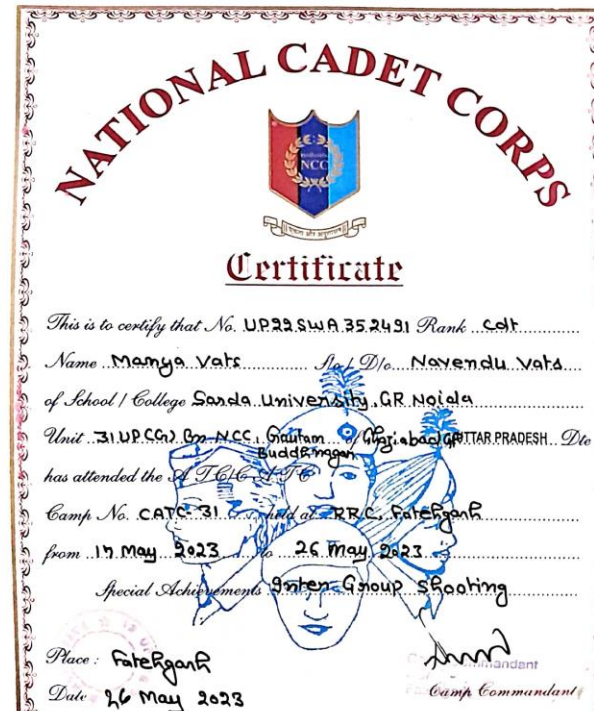 NATIONAL CADET CORPS
NCC
एकता और अनुशासन
Certificate
This is to certify that No. UP22SWA352491 Rank Cdt
Name Manya Vats S/o / D/o Navendu Vats
of School / College Sarda University, GR Noida
Unit 31 UP (G) Bn NCC, Gautam Buddh nagar of Ghaziabad GP UTTAR PRADESH Dte
has attended the A T C/C A T C
Camp No. CATC-31 held at RRC, Fatehgarh
from 17 May 2023 to 26 May 2023
Special Achievements Inter Group Shooting
Place : Fatehgarh
Commandant
Date 26 May 2023 Camp Commandant